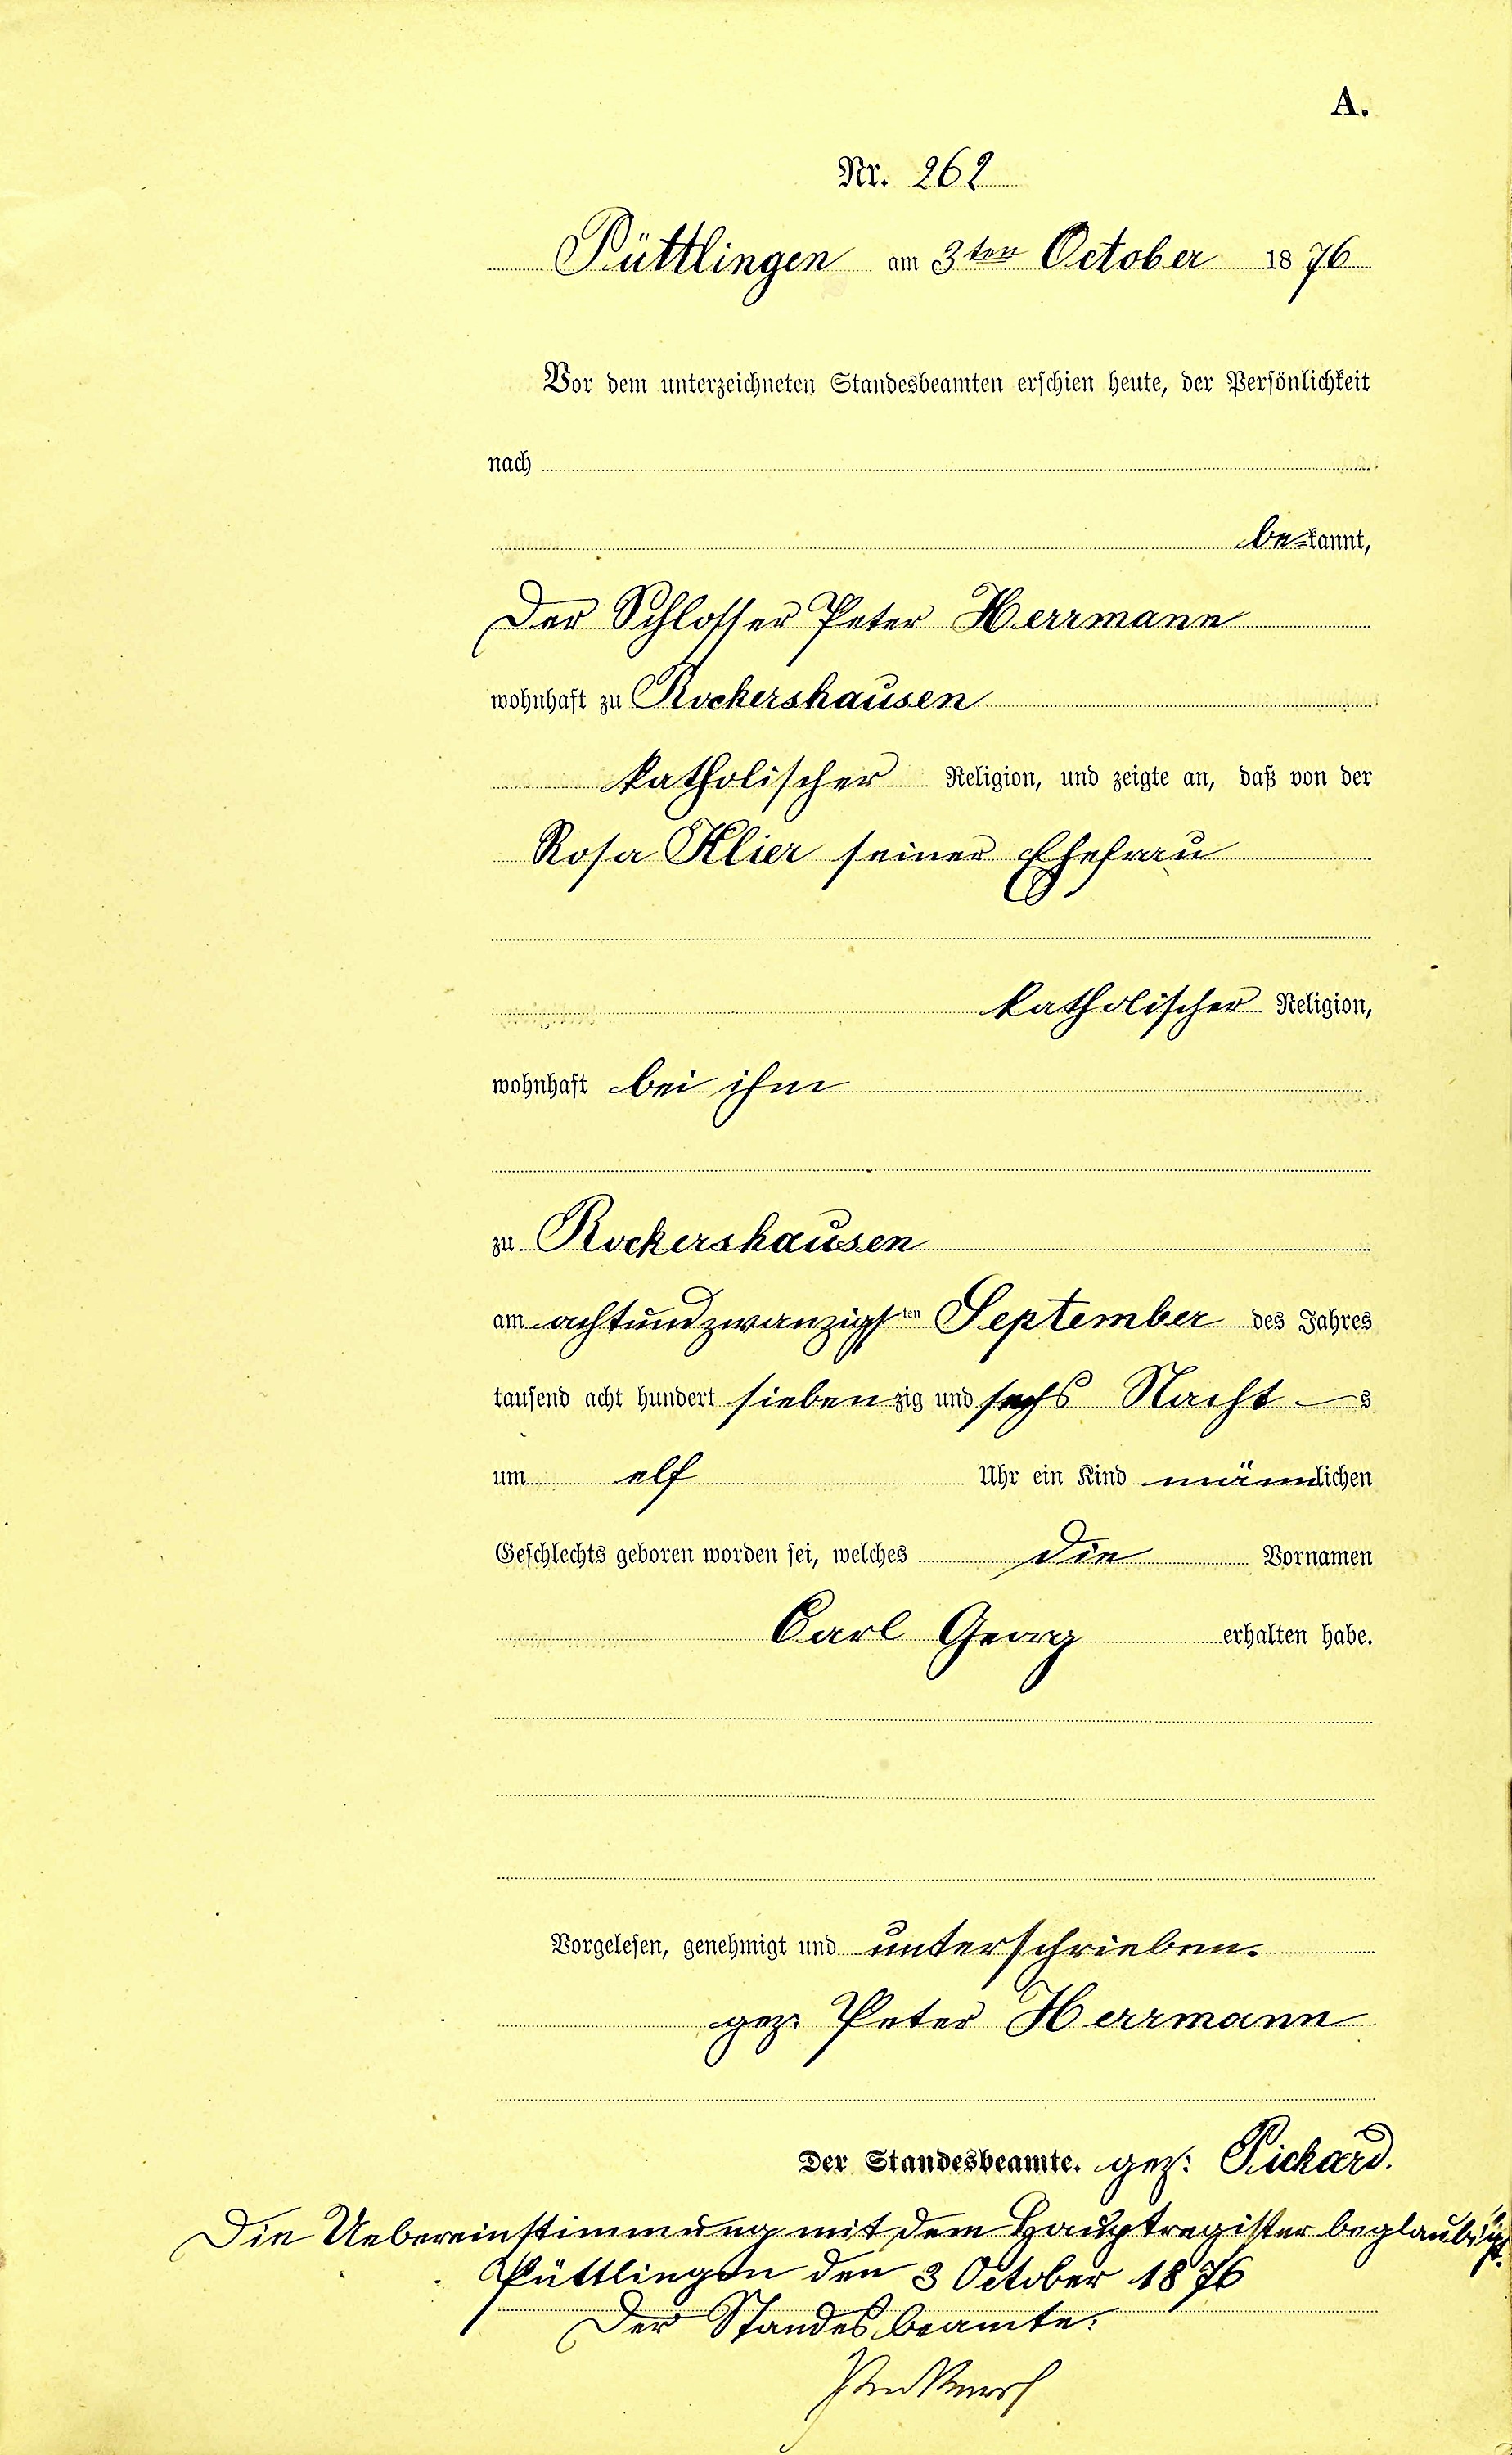 A.
Nr. 262
Püttlingen am 3ten October 1876
Vor dem unterzeichneten Standesbeamten erschien heute, der Persönlichkeit
nach
be=kannt,
Der Schlosser Peter Herrmann
wohnhaft zu Rockershausen
katholischer Religion, und zeigte an, daß von der
Rosa Klier seiner Ehefrau
katholischer Religion,
wohnhaft bei ihm
zu Rockershausen
am achtundzwanzigsten September des Jahres
tausend acht hundert siebenzig und sechs Nacht – s
um elf Uhr ein Kind männlichen
Geschlechts geboren worden sei, welches die Vornamen
Carl Georg erhalten habe.
Vorgelesen, genehmigt und unterschrieben.
gez. Peter Herrmann
Der Standesbeamte. gez: Pickard.
Die Uebereinstimmung mit dem Hauptregister beglaubigt.
Püttlingen den 3 October 1876
Der Standesbeamte.